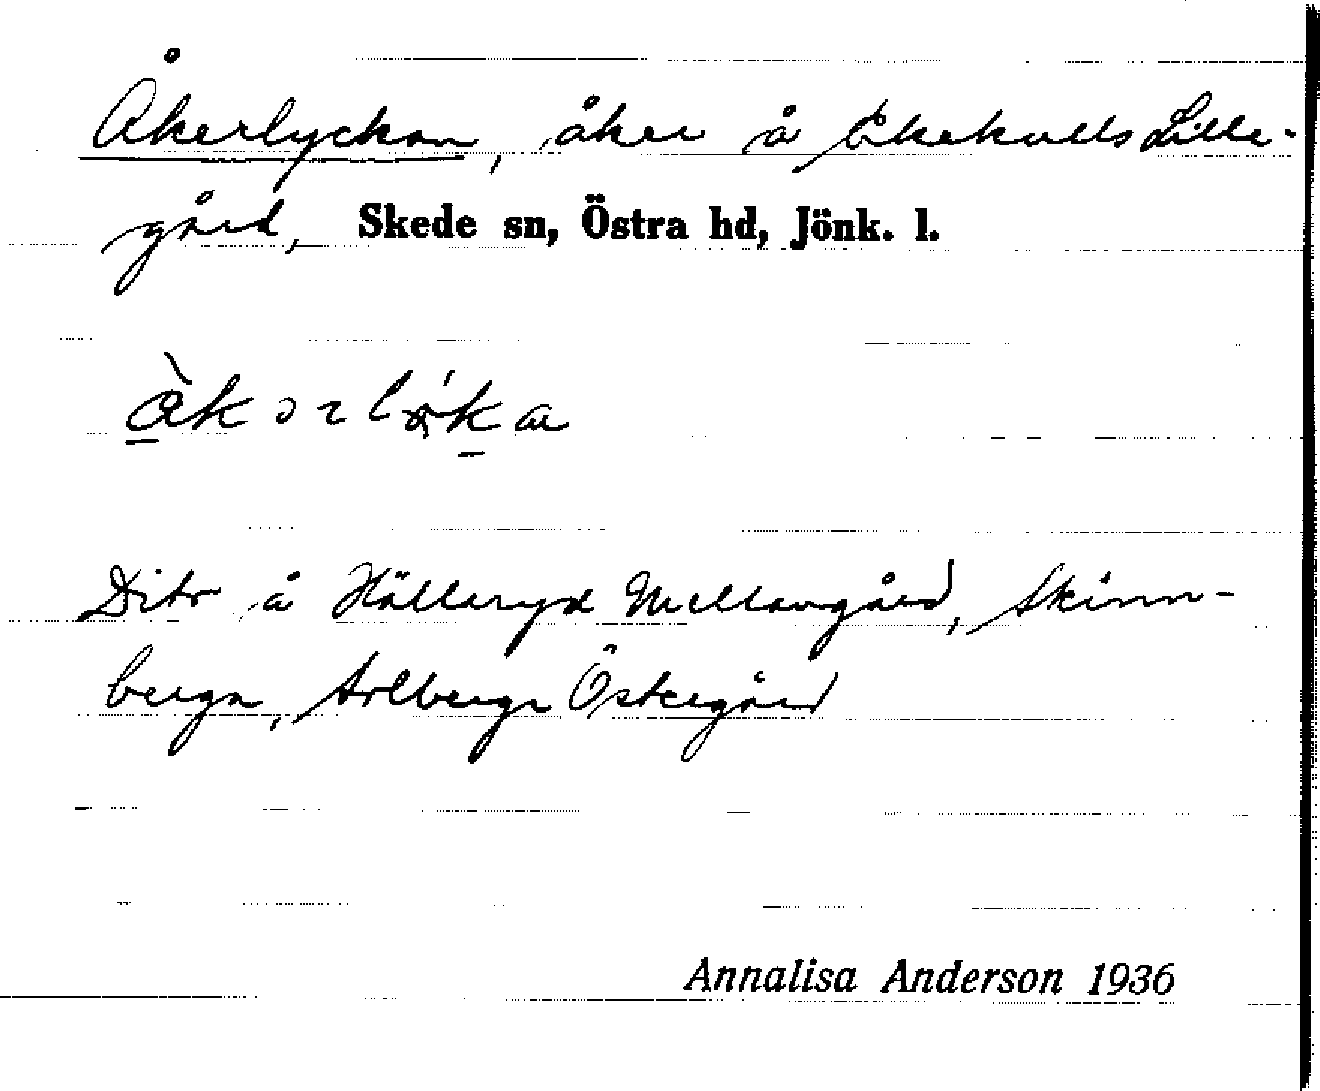 Åkerlyckan, åker å Ekekulls Lille-
gård, Skede sn, Östra hd, Jönk. l.
Dito å Hälleryd Mellangård, Skinn-
berga, Arlberga Östergård
Annalisa Anderson 1936